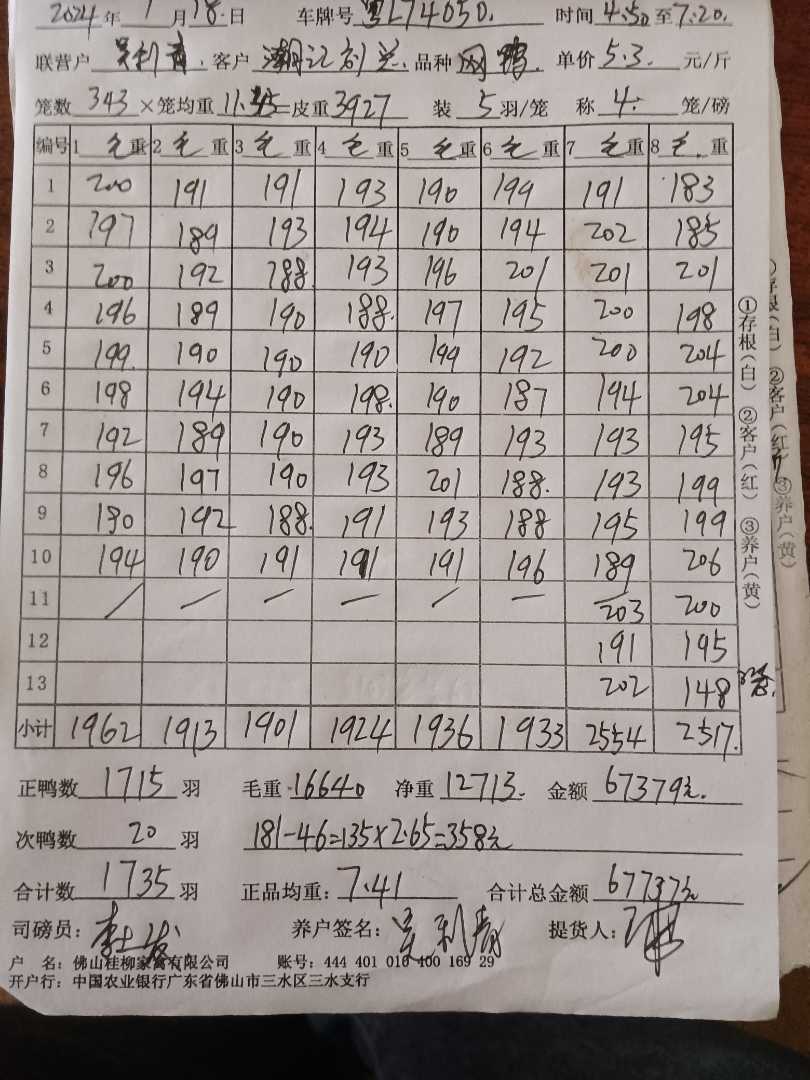 2024年 1月18日 车牌号 粤L74050. 时间 4:50至7:20.
联营户 吴利青. 客户 潮记 品种 网鸭. 单价 5.3. 元/斤
笼数 343 ×笼均重 11.45=皮重 3927 装 5 羽/笼 称 4: 笼/磅
编号 1 毛重 2 毛重 3 毛重 4 毛重 5 毛重 6 毛重 7 毛重 8 毛.重
1 200 191 191 193 190 199 191 183
2 197 189 193 194 190 194 202 185
3 200 192 188. 193 196 201 201 201
4 196 189 190 188. 197 195 200 198
5 199. 190 190 190 199 192 200 204
6 198 194 190 198. 190 187 194 204
7 192 189 190 193 189 193 193 195
8 196 197 190 193 201 188. 193 199
9 190 192 188. 191 193 188 195 199
10 194 190 191 191 191 196 189 206
11 / — — — / — 203 200
12 191 195
13 202 148 3笼.
小计 1962 1913 1901 1924 1936 1933 2554 2517.
正鸭数 1715 羽 毛重 16640 净重 12713. 金额 67379元.
次鸭数 20 羽 181-46=135×2.65=358元
合计数 1735 羽 正品均重: 7.41 合计总金额 67737元
司磅员: 养户签名: 吴利青 提货人:
户 名: 佛山桂柳家禽有限公司 账号: 444 401 010 400 169 29
开户行: 中国农业银行广东省佛山市三水区三水支行
①存根(白) ②客户(红) ③养户(黄)
②客户(红) ③养户(黄)